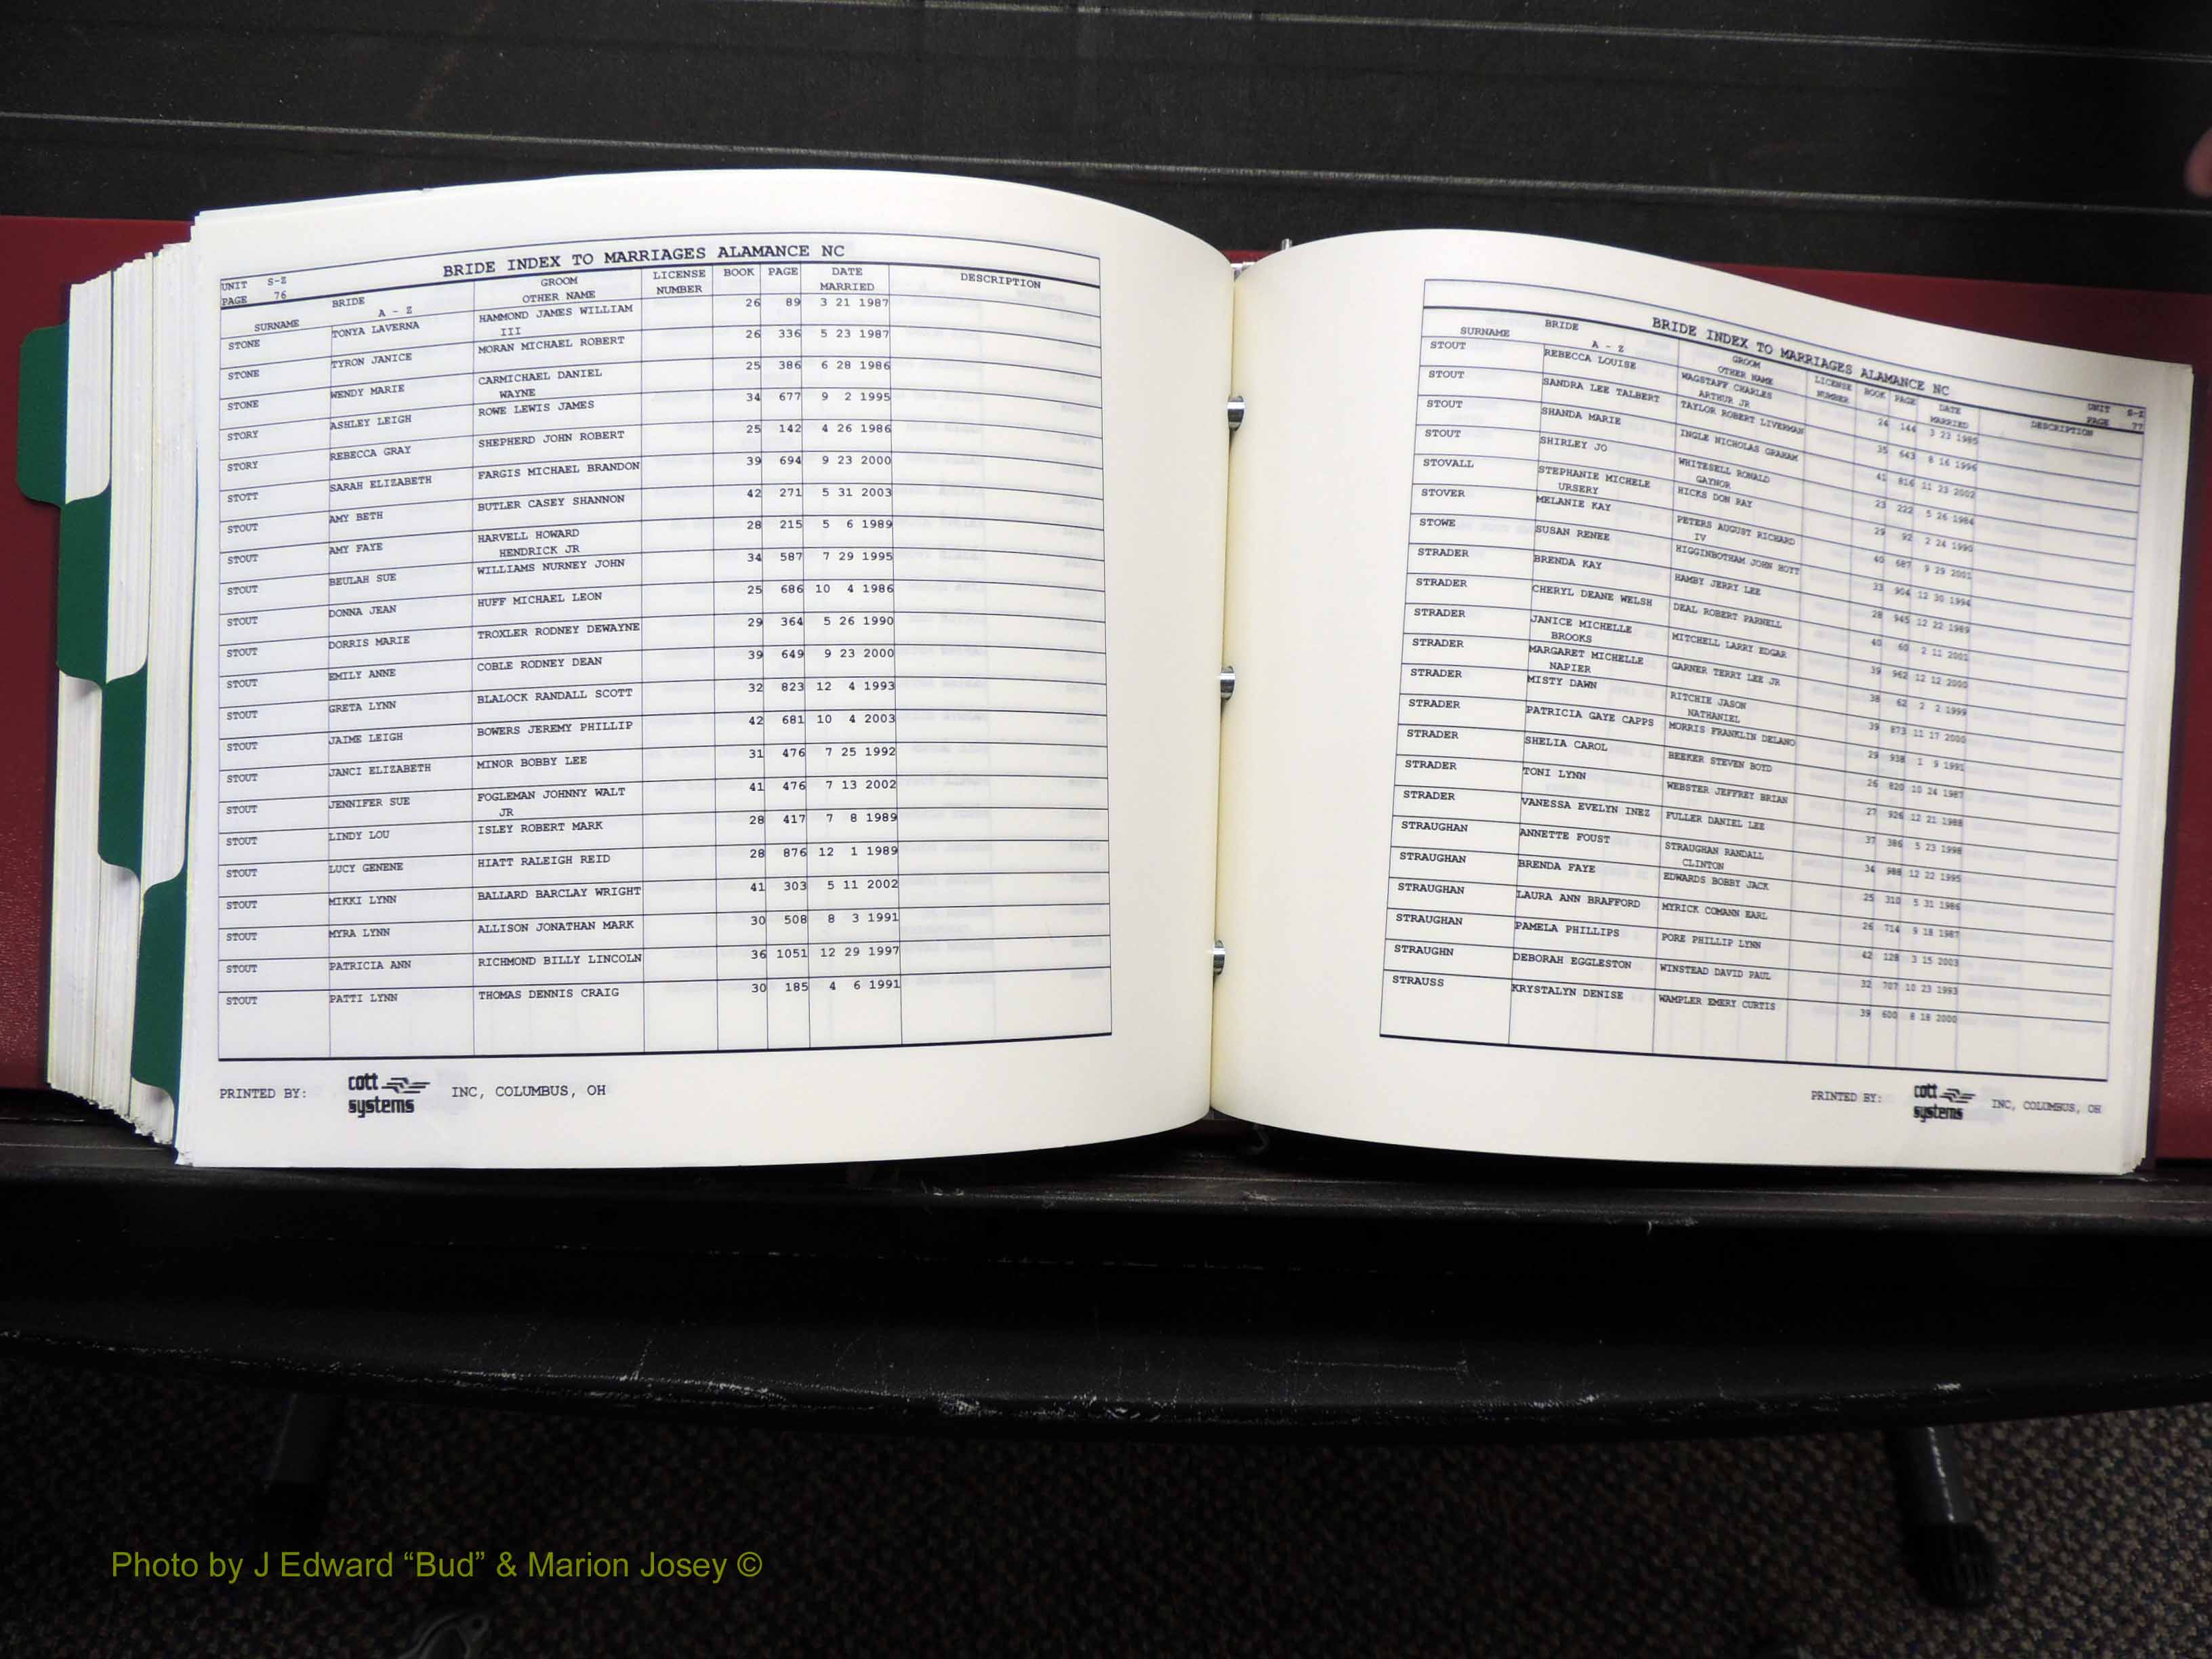 BRIDE INDEX TO MARRIAGES ALAMANCE NC
UNIT S-Z
PAGE 76
SURNAME BRIDE A - Z GROOM OTHER NAME LICENSE NUMBER BOOK PAGE DATE MARRIED DESCRIPTION
STONE TONYA LAVERNA HAMMOND JAMES WILLIAM 26 89 3 21 1987
III
STONE TYRON JANICE MORAN MICHAEL ROBERT 26 336 5 23 1987
STONE WENDY MARIE CARMICHAEL DANIEL 25 386 6 28 1986
WAYNE
STORY ASHLEY LEIGH ROWE LEWIS JAMES 34 677 9 2 1995
STORY REBECCA GRAY SHEPHERD JOHN ROBERT 25 142 4 26 1986
STOTT SARAH ELIZABETH FARGIS MICHAEL BRANDON 39 694 9 23 2000
STOUT AMY BETH BUTLER CASEY SHANNON 42 271 5 31 2003
STOUT AMY FAYE HARVELL HOWARD 28 215 5 6 1989
HENDRICK JR
STOUT BEULAH SUE WILLIAMS NURNEY JOHN 34 587 7 29 1995
STOUT DONNA JEAN HUFF MICHAEL LEON 25 686 10 4 1986
STOUT DORRIS MARIE TROXLER RODNEY DEWAYNE 29 364 5 26 1990
STOUT EMILY ANNE COBLE RODNEY DEAN 39 649 9 23 2000
STOUT GRETA LYNN BLALOCK RANDALL SCOTT 32 823 12 4 1993
STOUT JAIME LEIGH BOWERS JEREMY PHILLIP 42 681 10 4 2003
STOUT JANCI ELIZABETH MINOR BOBBY LEE 31 476 7 25 1992
STOUT JENNIFER SUE FOGLEMAN JOHNNY WALT 41 476 7 13 2002
JR
STOUT LINDY LOU ISLEY ROBERT MARK 28 417 7 8 1989
STOUT LUCY GENENE HIATT RALEIGH REID 28 876 12 1 1989
STOUT MIKKI LYNN BALLARD BARCLAY WRIGHT 41 303 5 11 2002
STOUT MYRA LYNN ALLISON JONATHAN MARK 30 508 8 3 1991
STOUT PATRICIA ANN RICHMOND BILLY LINCOLN 36 1051 12 29 1997
STOUT PATTI LYNN THOMAS DENNIS CRAIG 30 185 4 6 1991
PRINTED BY: cott systems INC, COLUMBUS, OH
BRIDE INDEX TO MARRIAGES ALAMANCE NC
UNIT S-Z
PAGE 77
SURNAME BRIDE A - Z GROOM OTHER NAME LICENSE NUMBER BOOK PAGE DATE MARRIED DESCRIPTION
STOUT REBECCA LOUISE WAGSTAFF CHARLES 24 144 3 23 1985
ARTHUR JR
STOUT SANDRA LEE TALBERT TAYLOR ROBERT LIVERMAN 35 643 8 16 1996
STOUT SHANDA MARIE INGLE NICHOLAS GRAHAM 41 816 11 23 2002
STOUT SHIRLEY JO WHITESELL RONALD 23 222 5 26 1984
GAYNOR
STOVALL STEPHANIE MICHELE HICKS DON RAY 29 92 2 24 1990
URSERY
STOVER MELANIE KAY PETERS AUGUST RICHARD 40 687 9 29 2001
IV
STOWE SUSAN RENEE HIGGINBOTHAM JOHN HOTT 33 904 12 30 1994
STRADER BRENDA KAY HAMBY JERRY LEE 28 945 12 22 1989
STRADER CHERYL DEANE WELSH DEAL ROBERT PARNELL 40 60 2 11 2001
STRADER JANICE MICHELLE MITCHELL LARRY EDGAR 39 962 12 12 2000
BROOKS
STRADER MARGARET MICHELLE GARNER TERRY LEE JR 38 62 2 2 1999
NAPIER
STRADER MISTY DAWN RITCHIE JASON 39 873 11 17 2000
NATHANIEL
STRADER PATRICIA GAYE CAPPS MORRIS FRANKLIN DELANO 29 938 1 9 1991
STRADER SHELIA CAROL BEEKER STEVEN BOYD 26 820 10 24 1987
STRADER TONI LYNN WEBSTER JEFFREY BRIAN 27 926 12 21 1988
STRADER VANESSA EVELYN INEZ FULLER DANIEL LEE 37 386 5 23 1998
STRAUGHAN ANNETTE FOUST STRAUGHAN RANDALL 34 988 12 22 1995
CLINTON
STRAUGHAN BRENDA FAYE EDWARDS BOBBY JACK 25 310 5 31 1986
STRAUGHAN LAURA ANN BRAFFORD MYRICK COMANN EARL 26 714 9 18 1987
STRAUGHAN PAMELA PHILLIPS PORE PHILLIP LYNN 42 128 3 15 2003
STRAUGHN DEBORAH EGGLESTON WINSTEAD DAVID PAUL 32 707 10 23 1993
STRAUSS KRYSTALYN DENISE WAMPLER EMERY CURTIS 39 600 8 18 2000
PRINTED BY: cott systems INC, COLUMBUS, OH
Photo by J Edward “Bud” & Marion Josey ©